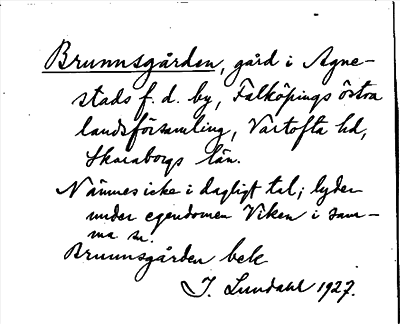 Brunnsgården, gård i Agne-
stads f. d. by, Falköpings östra
landsförsamling, Vartofta hd,
Skaraborgs län.
Nämnes icke i dagligt tal; lyder
under egendomen Viken i sam-
ma sn.
Brunnsgården bek
J. Lundahl 1927.